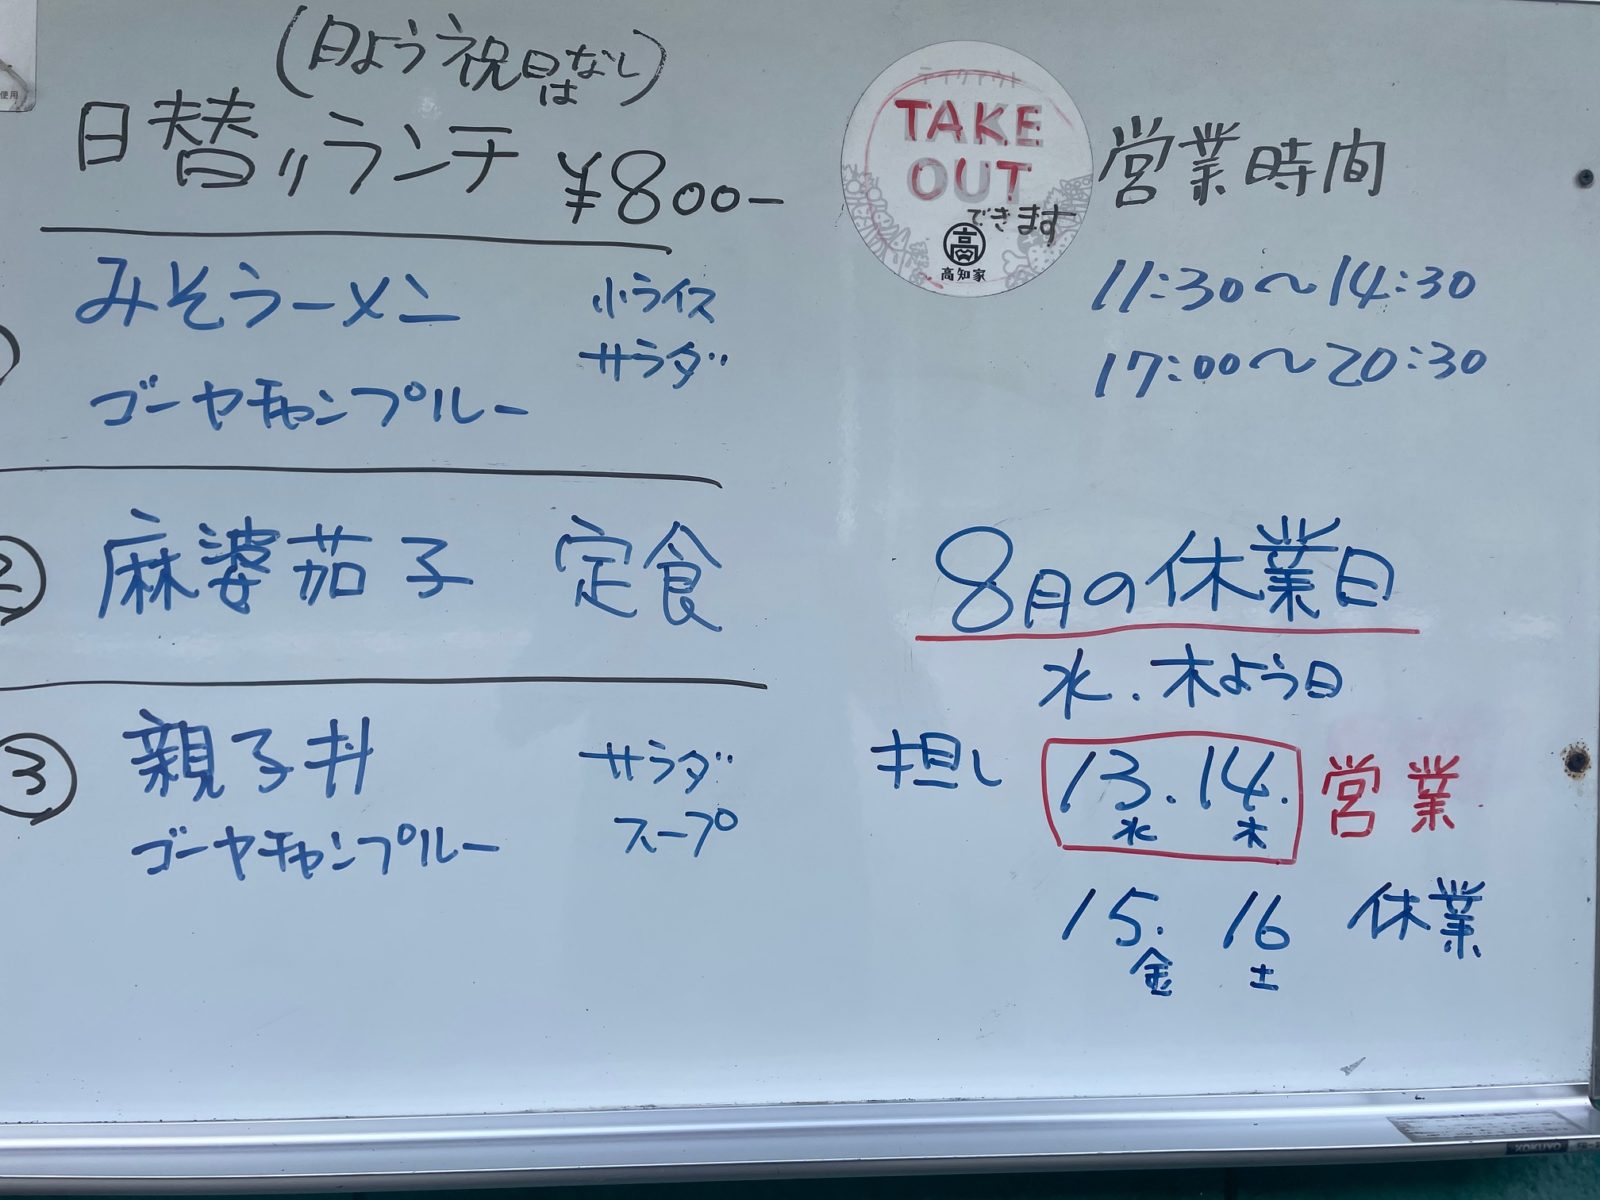 使用
(日よう祝日はなし)
日替りランチ ¥800-
みそラーメン 小ライス
サラダ
ゴーヤチャンプルー
② 麻婆茄子 定食
③ 親子丼 サラダ
ゴーヤチャンプルー スープ
テイクアウト
TAKE
OUT
できます
高
高知家
営業時間
11:30〜14:30
17:00〜20:30
8月の休業日
水.木よう日
担し 13.14. 営業
水 木
15. 16 休業
金 土
KOKUYO